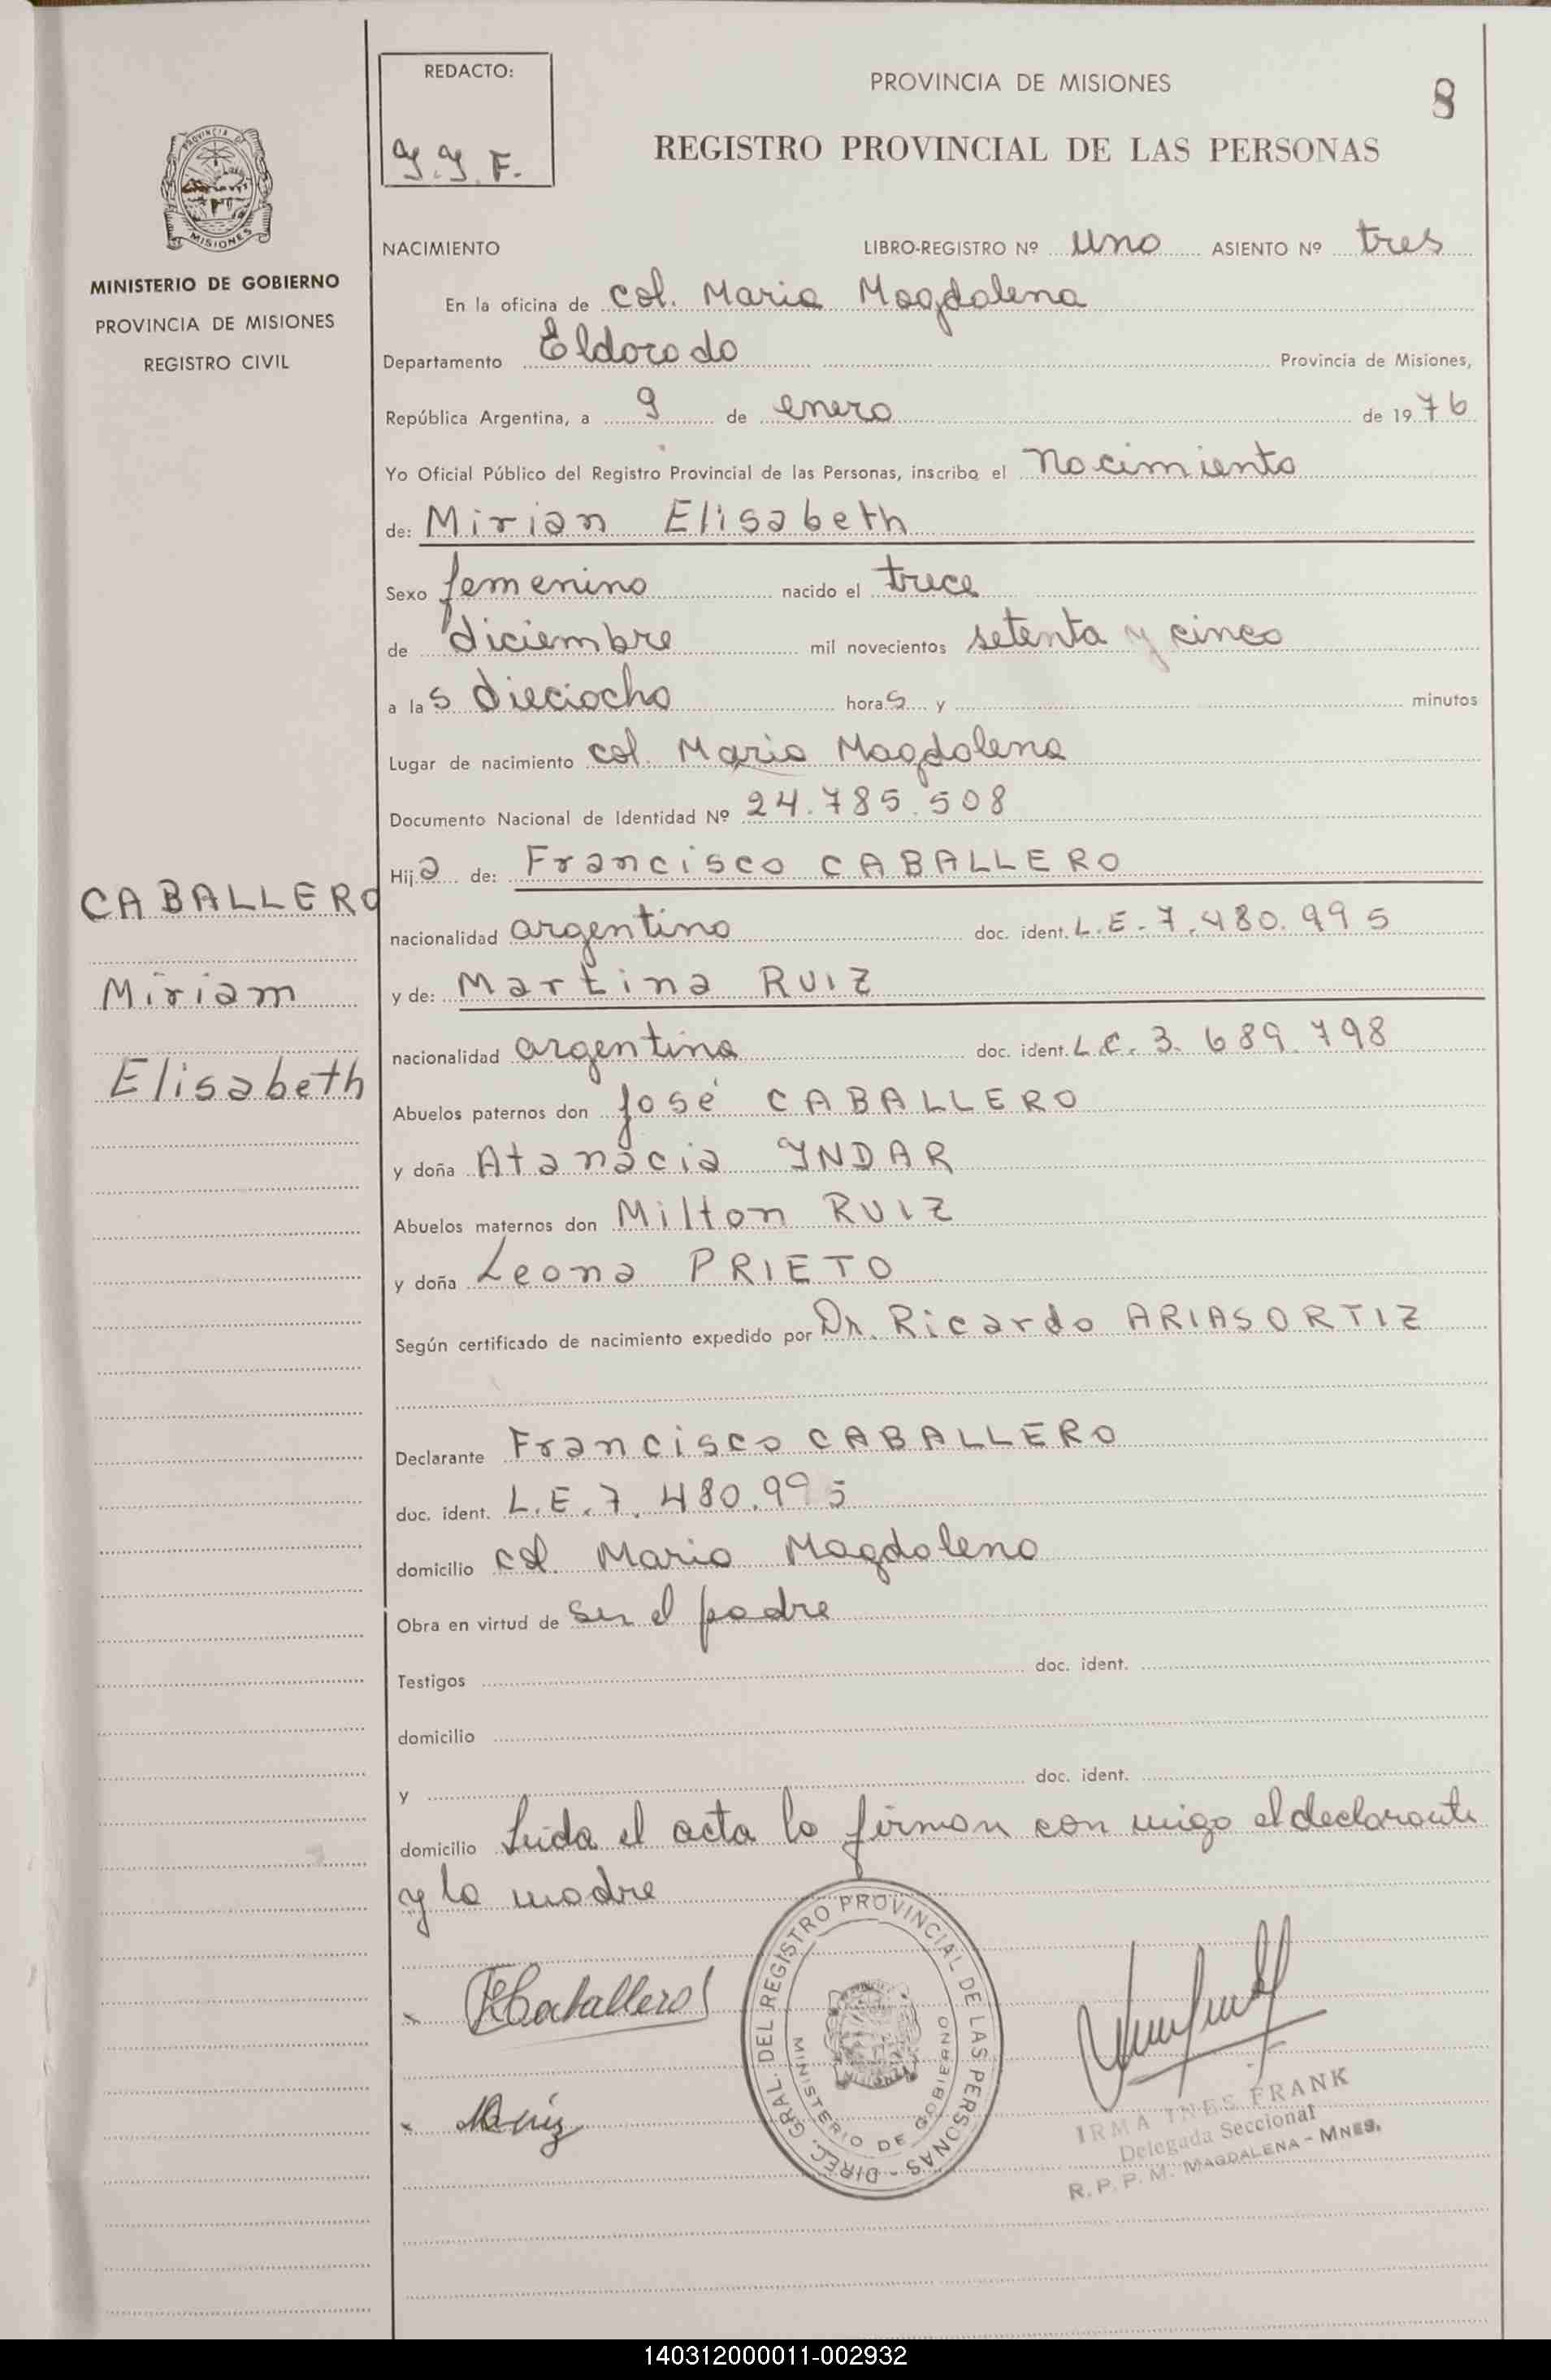 REDACTO:
PROVINCIA DE MISIONES
8
REGISTRO PROVINCIAL DE LAS PERSONAS
PROVINCIA DE
MISIONES
MINISTERIO DE GOBIERNO
PROVINCIA DE MISIONES
REGISTRO CIVIL
NACIMIENTO LIBRO-REGISTRO Nº uno ASIENTO Nº tres
En la oficina de col. Maria Magdalena
Departamento Eldorado Provincia de Misiones,
República Argentina, a 9 de enero de 1976
Yo Oficial Público del Registro Provincial de las Personas, inscribo el nacimiento
de: Mirian Elisabeth
Sexo femenino nacido el trece
de diciembre mil novecientos setenta y cinco
a las dieciocho horas y minutos
Lugar de nacimiento col. Maria Magdalena
Documento Nacional de Identidad Nº 24.785.508
Hija de: Francisco CABALLERO
nacionalidad argentino doc. ident. L.E. 7.480.995
y de: Martina RUIZ
nacionalidad argentina doc. ident. L.C. 3.689.798
Abuelos paternos don José CABALLERO
y doña Atanacia YNDAR
Abuelos maternos don Milton RUIZ
y doña Leona PRIETO
Según certificado de nacimiento expedido por Dr. Ricardo ARIAS ORTIZ
Declarante Francisco CABALLERO
doc. ident. L.E. 7.480.995
domicilio col. Maria Magdalena
Obra en virtud de ser el padre
Testigos doc. ident.
domicilio
y doc. ident.
domicilio Leida el acta la firman con migo el declarante
y la madre
CABALLERO
Miriam
Elisabeth
Caballero
Ruiz
DIREC. GRAL. DEL REGISTRO PROVINCIAL DE LAS PERSONAS -
MINISTERIO DE GOBIERNO
IRMA INES FRANK
Delegada Seccional
R. P. P. M. MAGDALENA - MNES.
140312000011-002932